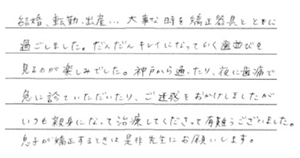 結婚、転勤、出産… 大事な時を矯正器具とともに
過ごしました。だんだんキレイになっていく歯並びを
見るのが楽しみでした。神戸から通ったり、夜に歯痛で
急に診ていただいたり、ご迷惑をおかけしましたが
いつも親身になって治療してくださって有難うございました。
息子が矯正するときは是非先生にお願いします。